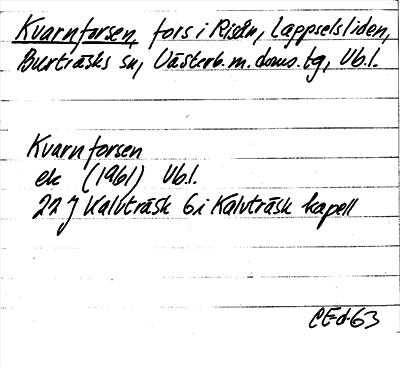 Kvarnforsen, fors i Risån, Lappselsliden,
Burträsks sn, Västerb. m. doms. tg, Vb. l.
Kvarnforsen
ek (1961) Vb.l.
22 J Kalvträsk 6 i Kalvträsk kapell
CEd-63